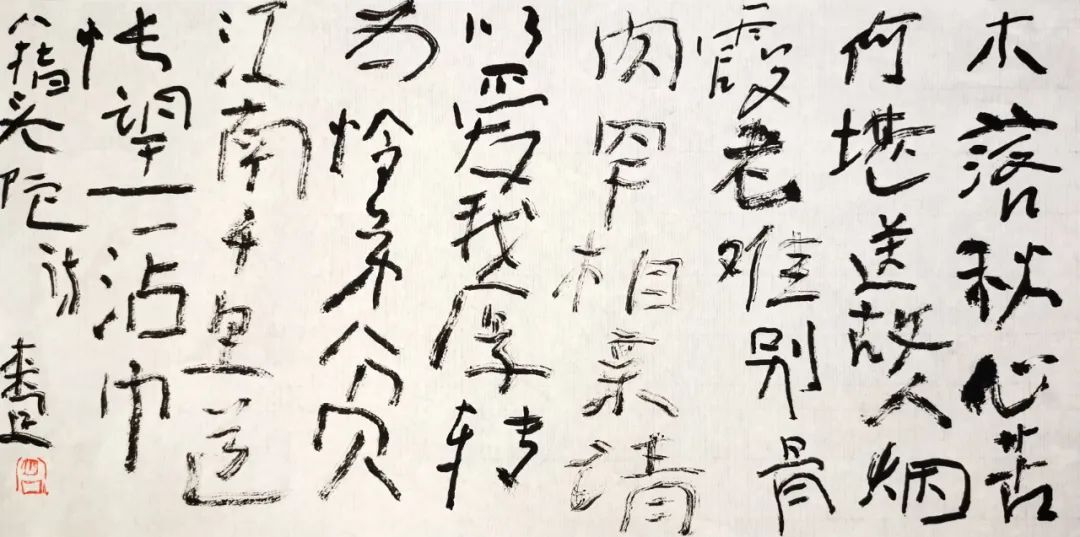 木落秋心苦
何堪送故人烟
霞老难别骨
肉罕相亲请
以爱我厚转
为怜弟贫
江南千里道
怅望一沾巾
八指头陀诗